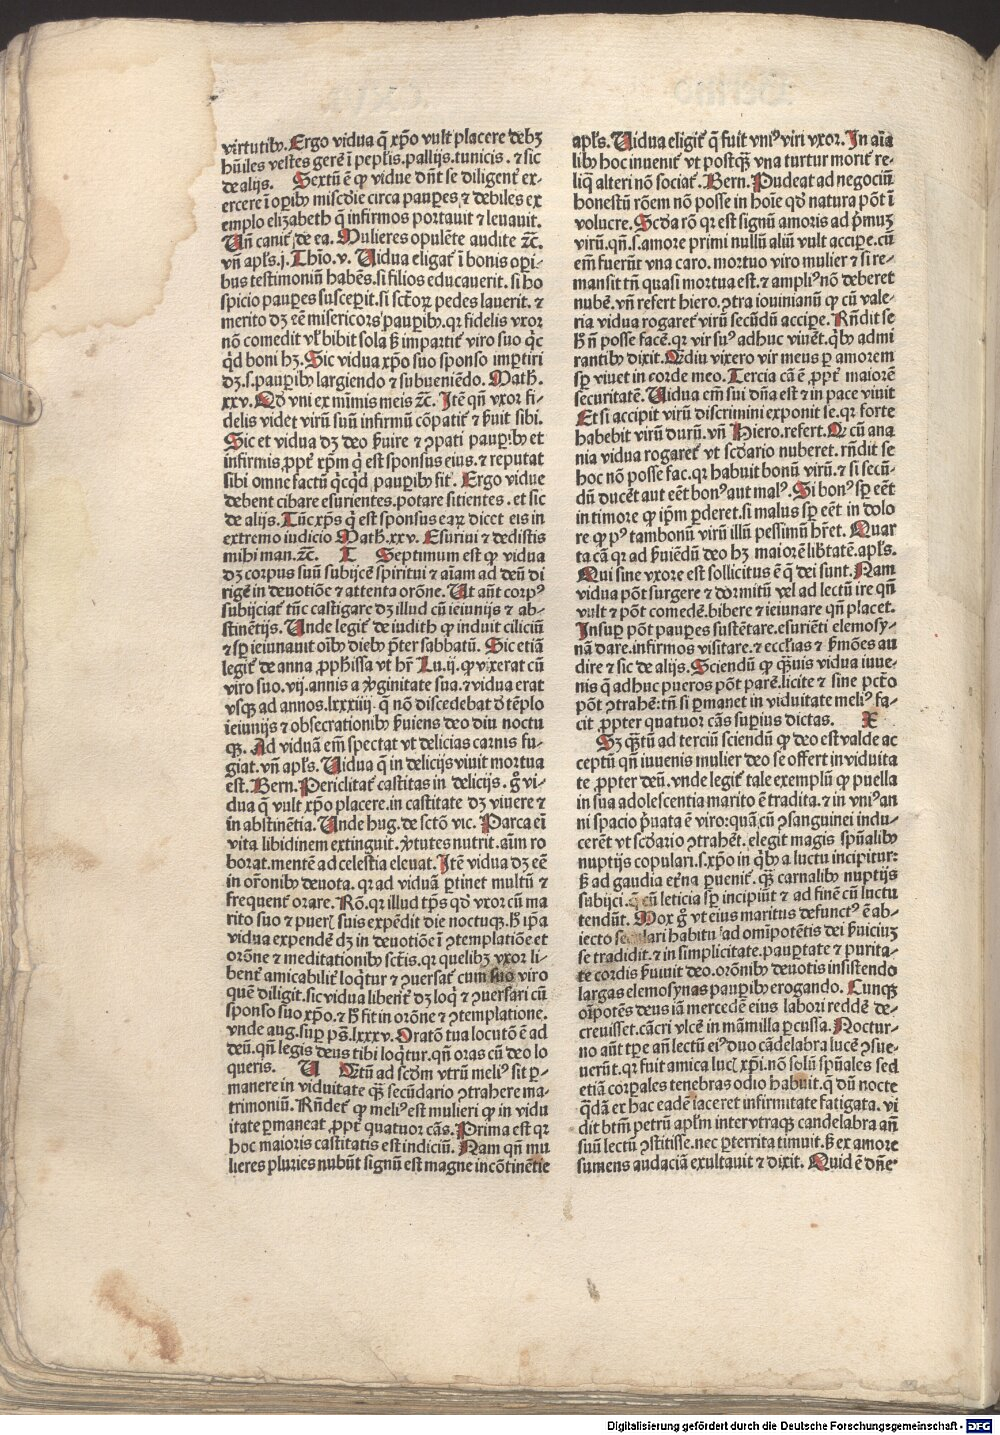 virtutibꝰ. Ergo vidua q̄ xp̄o vult placere debꝫ
hūiles vestes gerē ī peplis. pallijs. tunicis. ⁊ sic
de alijs. Sextū ē ꝙ vidue dn̄t se diligent᷑ ex-
ercere ī oꝑibꝰ misc̄die circa pauꝑes ⁊ debiles ex
emplo elizabeth q̄ infirmos portauit ⁊ leuauit.
Un̄ canit᷑ de ea. Mulieres opulēte audite ⁊c̄.
vn̄ apl̄s .j. Thīo. v. Uidua eligat᷑ ī bonis oꝑi-
bus testimoniū habēs. si filios educauerit. si ho
spicio pauꝑes susceꝑit. si sct̄oꝝ pedes lauerit. ⁊
merito dꝫ eē misericors pauꝑibꝰ. qr fidelis vxor
nō comedit vl̓ bibit sola s̄ꝫ impartit᷑ viro suo q̇c
q̇d boni hꝫ. Sic vidua xp̄o suo sponso imꝑtiri
dꝫ .s. pauꝑibꝰ largiendo ⁊ subueniēdo. Math̄.
xxv. Qd̓ vni ex mīmis meis ⁊c̄. Itē qn̄ vxor fi-
delis videt virū suū infirmū cōpatit᷑ ⁊ ẜuit sibi.
Sic et vidua dꝫ deo ẜuire ⁊ ꝯpati pauꝑibꝰ et
infirmis ꝓpt᷑ xp̄m q̇ est sponsus eius. ⁊ reputat
sibi omne factū q̇cq̇d pauꝑibꝰ fit. Ergo vidue
debent cibare esurientes. potare sitientes. et sic
de alijs. Tūc xp̄s q̇ est sponsus eaꝝ dicet eis in
extremo iudicio Math̄. xxv. Esuriui ⁊ dedistis
mihi man. ⁊c̄. T Septimum est ꝙ vidua
dꝫ corpus suū subijcē spiritui ⁊ aīam ad deū di
rigē in deuotiōe ⁊ attenta orōne. Ut aūt corpꝰ
subijciat᷑ tūc castigare dꝫ illud cū ieiunijs ⁊ ab-
stinētijs. Unde legit᷑ de iudith ꝙ induit ciliciū
⁊ sꝑ ieiunauit oībꝰ diebꝰ p̄ter sabbatū. Sic etiā
legit᷑ de anna ꝓph̄issa vt hr̄ Lu. ij. ꝙ vixerat cū
viro suo. vij. annis a v̓ginitate sua. ⁊ vidua erat
vsqꝫ ad annos. lxxxiiij. q̄ nō discedebat d̓ tēplo
ieiunijs ⁊ obsecrationibꝰ ẜuiens deo diu noctu
qꝫ. Ad viduā em̄ spectat vt delicias carnis fu-
giat. vn̄ apl̄s. Uidua q̄ in delicijs viuit mortua
est. Bern. Periclitat᷑ castitas in delicijs. g̊ vi-
dua q̄ vult xp̄o placere. in castitate dꝫ viuere ⁊
in abstinētia. Unde hug. de sct̄o vic. Parca eī
vita libidinem extinguit. v̓tutes nutrit. aīm ro
borat. mentē ad celestia eleuat. Itē vidua dꝫ eē
in or̄onibꝰ deuota. qr ad viduā ꝑtinet multū ⁊
frequent᷑ orare. Rō. qr illud tp̄s qd̓ vxor cū ma
rito suo ⁊ pueꝝ suis expēdit die noctuqꝫ. h̓ ip̄a
vidua expendē dꝫ in deuotiōe ī ꝯtemplatiōe et
orōne ⁊ meditationibꝰ sct̄is. qr quelibꝫ vxor li-
bent᷑ amicabilit᷑ loq̇tur ⁊ ꝯuersat᷑ cum suo viro
quē diligit. sic vidua libent᷑ dꝫ loq̇ ⁊ ꝯuersari cū
sponso suo xp̄o. ⁊ h̓ fit in orōne ⁊ ꝯtemplatione.
vnde aug. suꝑ ps̄. lxxxv. Oratō tua locutō ē ad
deū. qn̄ legis deus tibi loq̇tur. qn̄ oras cū deo lo
queris. U Qtū ad scd̓m vtrū meliꝰ sit ꝑ-
manere in viduitate qꝫ̄ secūdario ꝯtrahere ma-
trimoniū. Rn̄det᷑ ꝙ meliꝰ est mulieri ꝙ in vidu
itate ꝑmaneat ꝓpt᷑ quatuor cās. Prima est qr
hoc maioris castitatis est indiciū. Nam qn̄ mu
lieres pluries nubūt signū est magne incōtinētie
apl̄s. Uidua eligit᷑ q̄ fuit vniꝰ viri vxor. In aīa
libꝰ hoc inuenit᷑ vt postqꝫ̄ vna turtur morit᷑ re-
liq̄ alteri nō sociat᷑. Bern. Pudeat ad negociū
honestū rōem nō posse in hoīe qd̓ natura pōt ī
volucre. Scd̓a rō qr est signū amoris ad p̄muꝫ
virū. qn̄ .s. amore primi nullū aliū vult acciꝑe. cū
em̄ fuerūt vna caro. mortuo viro mulier ⁊ si re-
mansit tn̄ quasi mortua est. ⁊ ampliꝰ nō deberet
nubē. vn̄ refert hiero. ꝯtra iouinianū ꝙ cū vale-
ria vidua rogaret᷑ virū secūdū acciꝑe. Rn̄dit se
h̓ n̄ posse facē. qr vir suꝰ adhuc viuēt. q̇bꝰ admi
rantibꝰ dixit. Qdiu vixero vir meus ꝑ amorem
sꝑ viuet in corde meo. Tercia cā ē ꝓpt᷑ maiorē
securitatē. Uidua em̄ sui dn̄a est ⁊ in pace viuit
Et si accipit virū discrimini exponit se. qr forte
habebit virū durū. vn̄ Hiero. refert. Q cū ana
nia vidua rogaret᷑ vt scd̓ario nuberet. rn̄dit se
hoc nō posse fac. qr habuit bonū virū. ⁊ si secū-
dū ducēt aut eēt bonꝰ aut malꝰ. Si bonꝰ sꝑ eēt
in timore ꝙ ip̄m ꝑderet. si malus sꝑ eēt in dolo
re ꝙ pꝰ tam bonū virū illū pessimū hr̄et. Quar
ta cā qr ad ẜuiēdū deo hꝫ maiorē lib̓tatē. apl̄s.
Qui sine vxore est sollicitus ē q̄ dei sunt. Nam
vidua pōt surgere ⁊ dormitū vel ad lectū ire qn̄
vult ⁊ pōt comedē. bibere ⁊ ieiunare qn̄ placet.
Insuꝑ pōt pauꝑes sustētare. esuriēti elemosy-
nā dare. infirmos visitare. ⁊ eccl̄ias ⁊ ẜmōes au
dire ⁊ sic de alijs. Sciendū ꝙ qꝫ̄uis vidua iuue-
nis q̄ adhuc pueros pōt parē. licite ⁊ sine pctō
pōt ꝯtrahē. tn̄ si ꝑmanet in viduitate meliꝰ fa-
cit ꝓpter quatuor cās suꝑius dictas. X
Sꝫ qꝫ̄tū ad terciū sciendū ꝙ deo est valde ac
ceptū qn̄ iuuenis mulier deo se offert in viduita
te ꝓpter deū. vnde legit᷑ tale exemplū ꝙ puella
in sua adolescentia marito ē tradita. ⁊ in vniꝰ an
ni spacio p̄uata ē viro: quā cū ꝯsanguinei indu-
cerēt vt scd̓ario ꝯtrahēt. elegit magis spūalibꝰ
nuptijs copulari .s. xp̄o in q̇bꝰ a luctu incipitur:
s̄ꝫ ad gaudia et̓na ꝑuenit᷑. qꝫ̄ carnalibꝰ nuptijs
subijci. q̄ cū leticia sꝑ incipiūt ⁊ ad finē cū luctu
tendūt. Mox g̊ vt eius maritus defunctꝰ ē ab-
iecto seculari habitu ad omīpotētis dei ẜuiciuꝫ
se tradidit. ⁊ in simplicitate. pauꝑtate ⁊ purita-
te cordis ẜuiuit deo. orōnibꝰ deuotis insistendo
largas elemosynas pauꝑibꝰ erogando. Cunqꝫ
oīpotēs deus iā mercedē eius labori reddē de-
creuisset. cācri vlcē in māmilla ꝑcussa. Noctur-
no aūt tꝑe an̄ lectū eiꝰ duo cādelabra lucē ꝯsue-
uerūt. qr fuit amica lucꝭ xp̄i. nō solū spūales sed
etiā corꝑales tenebras odio habuit. q̄ dū nocte
q̇dā ex hac eadē iaceret infirmitate fatigata. vi
dit btm̄ petrū apl̄m inter vtraqꝫ candelabra an̄
suū lectū ꝯstitisse. nec ꝑterrita timuit. s̄ꝫ ex amore
sumens audaciā exultauit ⁊ dixit. Quid ē dn̄e
Digitalisierung gefördert durch die Deutsche Forschungsgemeinschaft - DFG